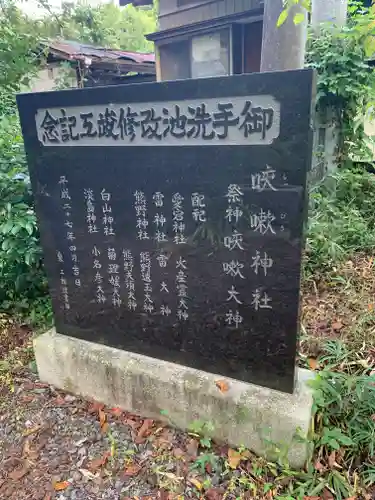 御手洗池改修竣工記念
咳嗽神社
祭神 咳嗽大神
配祀
愛宕神社 火産霊大神
雷神社 雷大神
熊野神社 熊野速玉大神
熊野夫須美大神
白山神社 菊理媛大神
淡島神社 少名彦大神
平成二十七年四月吉日